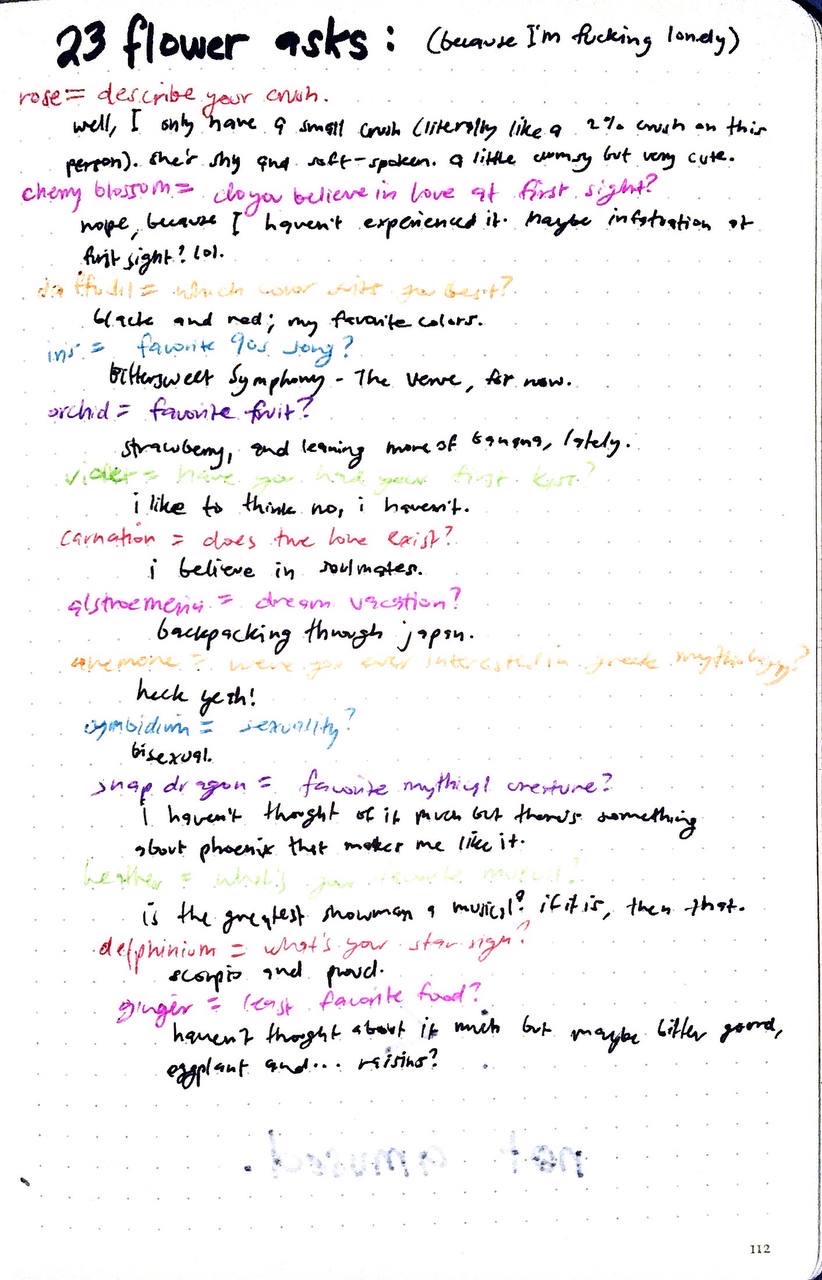 23 flower asks: (because I'm fucking lonely)
rose = describe your crush.
well, I only have a small crush (literally like a 2% crush on this
person). she's shy and soft-spoken. a little clumsy but very cute.
cherry blossom = do you believe in love at first sight?
nope, because I haven't experienced it. maybe infatuation at
first sight? lol.
daffodil = which color suits you best?
black and red; my favorite colors.
iris = favorite 90s song?
bittersweet symphony - The Verve, for now.
orchid = favorite fruit?
strawberry, and leaning more of banana, lately.
violet = have you had your first kiss?
i like to think no, i haven't.
carnation = does true love exist?
i believe in soulmates.
alstroemeria = dream vacation?
backpacking through japan.
anemone = were you ever interested in greek mythology?
heck yeah!
cymbidium = sexuality?
bisexual.
snap dragon = favorite mythical creature?
i haven't thought of it much but there's something
about phoenix that makes me like it.
heather = what's your favorite musical?
is the greatest showman a musical? if it is, then that.
delphinium = what's your star sign?
scorpio and proud.
ginger = least favorite food?
haven't thought about it much but maybe bitter gourd,
eggplant and... raisins?
not amused.
112